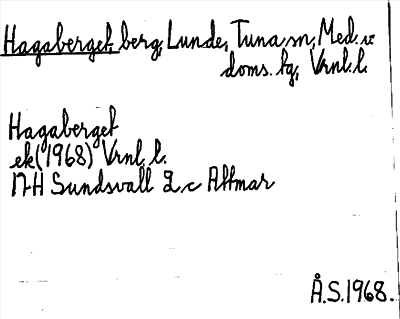 Hagaberget, berg, Lunde, Tuna sn, Med. v.
doms. tg, Vrnl. l.
Hagaberget
ek (1968) Vrnl. l.
17H Sundsvall 2 c Attmar
Å.S. 1968.